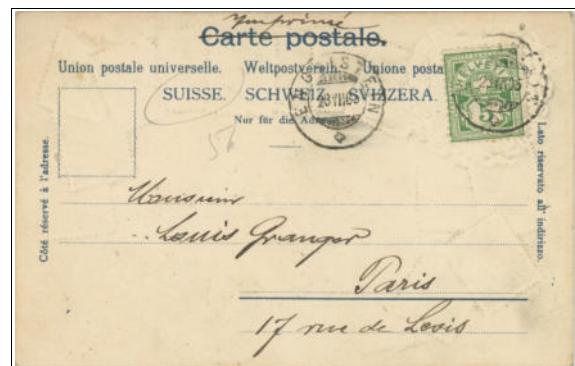 Imprimé
Carte postale.
Union postale universelle. Weltpostverein. Unione posta
SUISSE. SCHWEIZ. SVIZZERA.
Nur für die
HELVETIA
5
Côté réservé à l'adresse.
Lato riservato all' indirizzo.
Monsieur
Louis Granger
Paris
17 rue de Levis